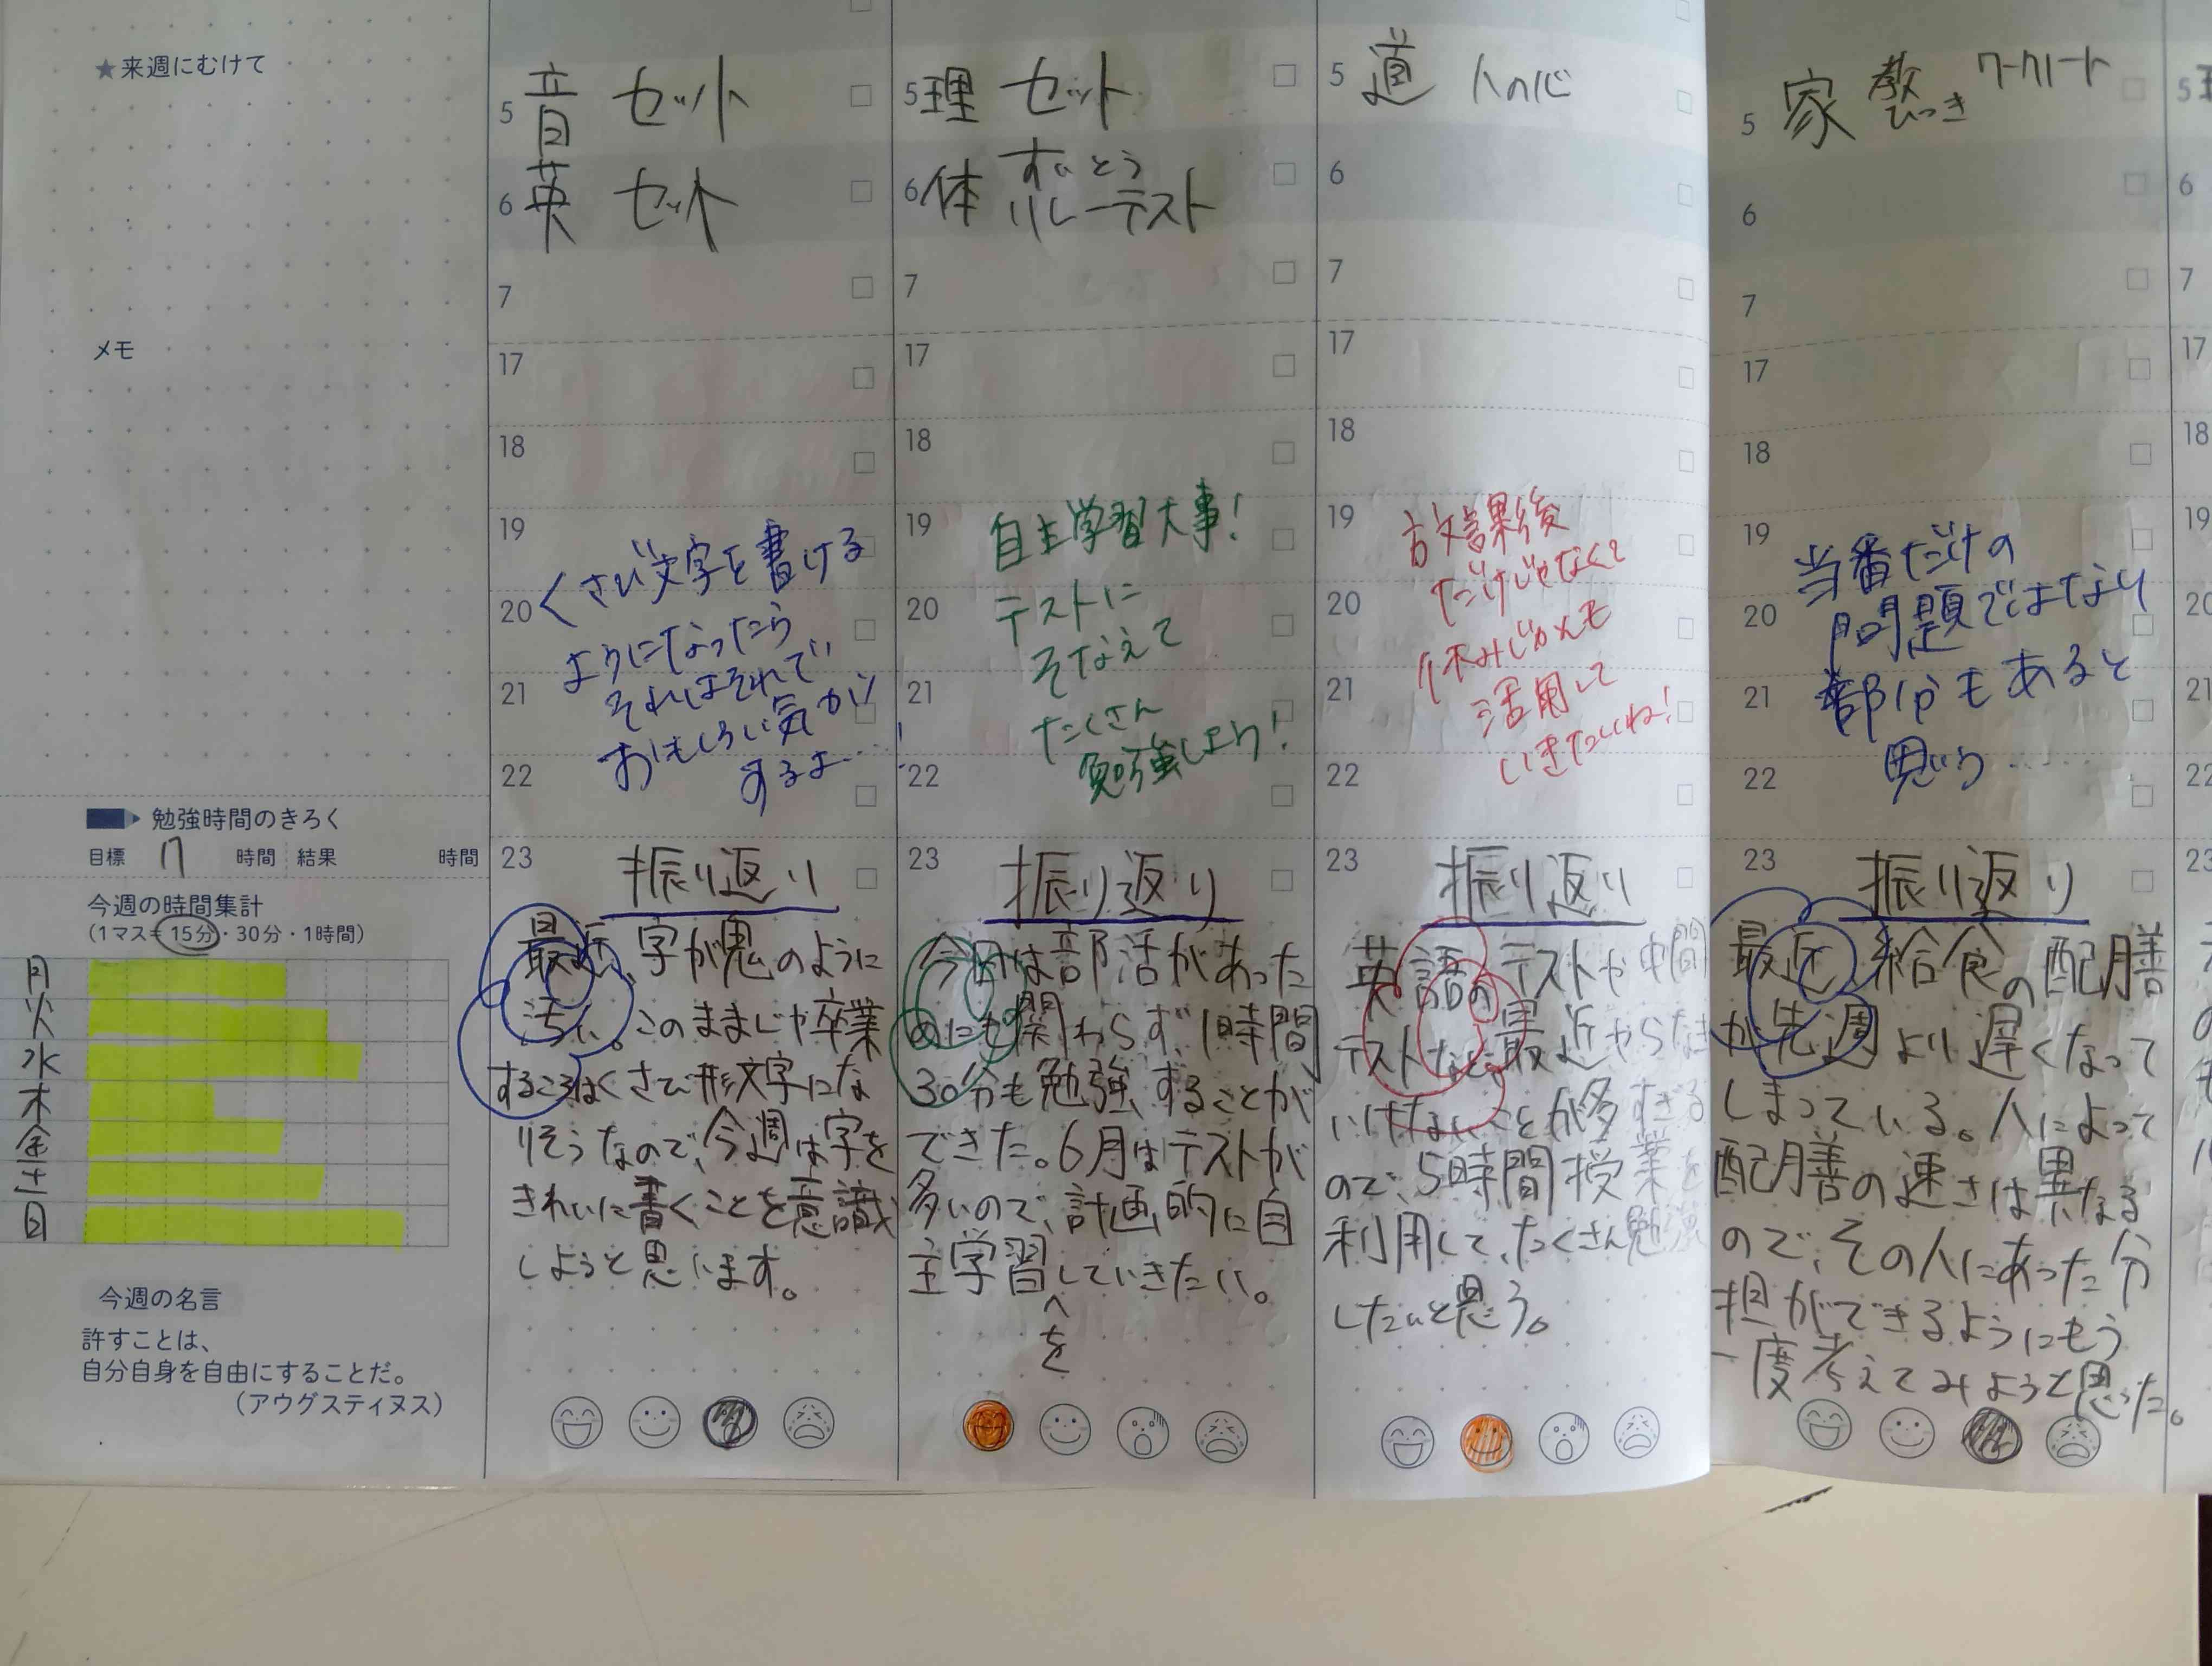 ★来週にむけて
メモ
勉強時間のきろく
目標 17 時間 結果 時間
今週の時間集計
(1マス=15分・30分・1時間)
月
火
水
木
金
土
日
今週の名言
許すことは、
自分自身を自由にすることだ。
(アウグスティヌス)
5 音 セット
6 英 セット
7
17
18
19
20
21
22
くさび文字を書ける
ようになったら
それはそれで
おもしろい気が
するよ…
23 振り返り
最近、字が鬼のように
汚い。このままじゃ卒業
するころはくさび形文字にな
りそうなので、今週は字を
きれいに書くことを意識
しようと思います。
5 理 セット
6 体 すいとう
リレーテスト
7
17
18
19
20
21
22
自主学習大事!
テストに
そなえて
たくさん
勉強しよう!
23 振り返り
今回は部活があった
のにも関わらず、1時間
30分も勉強することが
できた。6月はテストが
多いので、計画的に自
主学習していきたい。
を
5 道 人の心
6
7
17
18
19
20
21
22
放課後
だけじゃなくて
休みじかんも
活用して
いきたいね!
23 振り返り
英語のテストや中間
テストなど、最近やらなき
いけないことが多すぎる
ので、5時間授業を
利用して、たくさん勉強
したいと思う。
5 家 教 ワークノート
ひっき
6
7
17
18
19
20
21
22
当番だけの
問題ではない
部分もあると
思う……
23 振り返り
最近、給食の配膳
が先週より遅くなって
しまっている。人によって
配膳の速さは異なる
ので、その人にあった分
担ができるようにもう
一度考えてみようと思った。
5
6
7
17
18
19
20
21
22
23